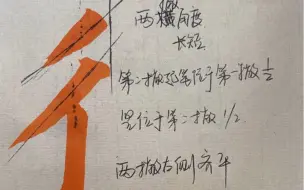 彳
两撇角度
长短
第二撇起笔位于第一撇1/2
竖位于第二撇1/2
两撇右侧齐平